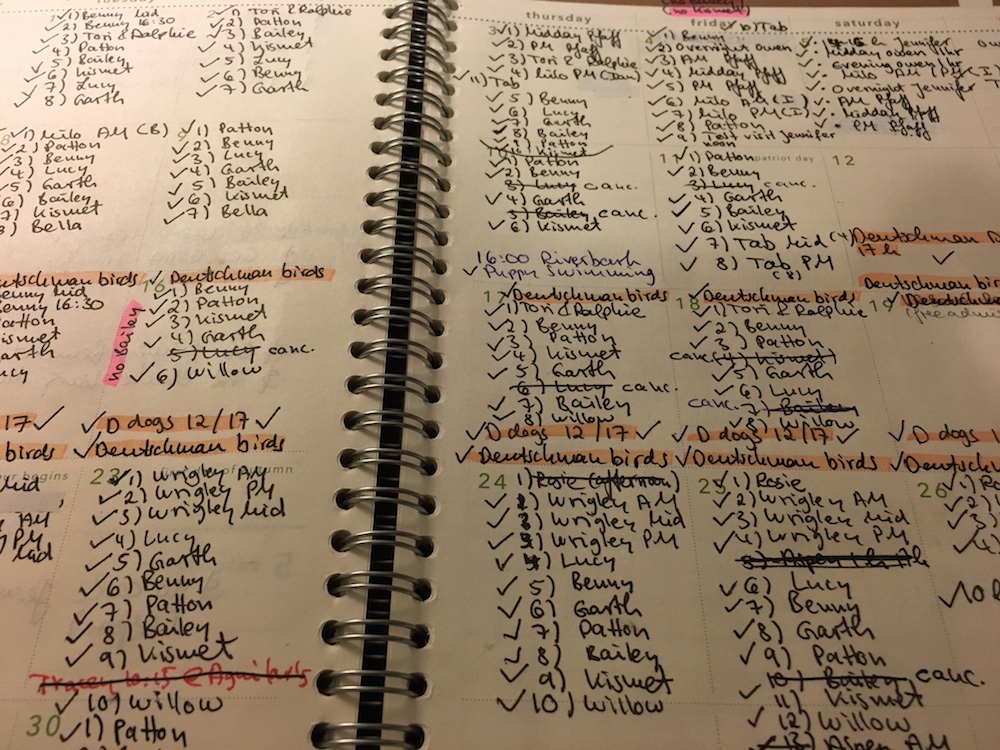 1) Benny Mid
2) Benny 16:30
3) Tori & Ralphie
4) Patton
5) Bailey
6) Kismet
7) Lucy
8) Garth
1) Tori & Ralphie
2) Patton
3) Bailey
4) Kismet
5) Lucy
6) Benny
7) Garth
1) Milo AM (B)
2) Patton
3) Benny
4) Lucy
5) Garth
6) Bailey
7) Kismet
8) Bella
9
1) Patton
2) Benny
3) Lucy
4) Garth
5) Bailey
6) Kismet
7) Bella
Deutschman birds
Benny Mid
Benny 16:30
16
Deutschman birds
1) Benny
2) Patton
3) Kismet
4) Garth
5) Lucy canc.
6) Willow
no Bailey
D dogs 12/17
Deutschman birds
23
1) Wrigley AM
2) Wrigley PM
3) Wrigley Mid
4) Lucy
5) Garth
6) Benny
7) Patton
8) Bailey
9) Kismet
10) Willow
30
1) Patton
thursday
3
1) Midday Pfaff
2) PM Pfaff
3) Tori & Ralphie
4) Milo PM (Ian)
11) Tab
5) Benny
6) Lucy
7) Garth
8) Bailey
9) Patton
10) Kismet
10
1) Patton
2) Benny
3) Lucy canc.
4) Garth
5) Bailey canc.
6) Kismet
16:00 Riverbark
Puppy Swimming
17
Deutschman birds
1) Tori & Ralphie
2) Benny
3) Patton
4) Kismet
5) Garth
6) Lucy canc.
7) Bailey
8) Willow
D dogs 12/17
Deutschman birds
24
1) Rosie (afternoon)
2) Wrigley AM
3) Wrigley Mid
Wrigley PM
4) Lucy
5) Benny
6) Garth
7) Patton
8) Bailey
9) Kismet
10) Willow
(no Kismet)
friday
10) Tab
1) Benny
2) Overnight Owen
3) AM Pfaff
4) Midday Pfaff
5) PM Pfaff
6) Milo AM (I)
7) Milo PM (I)
8) Patton
9) Tab visit Jennifer
noon
11
patriot day
1) Patton
2) Benny
3) Lucy canc.
4) Garth
5) Bailey
6) Kismet
7) Tab Mid (4)
8) Tab PM
18
Deutschman birds
1) Tori & Ralphie
2) Benny
3) Patton
canc. 4) Kismet
5) Garth
6) Lucy
canc. 7) Bailey
8) Willow
D dogs 12/17
Deutschman birds
25
1) Rosie
2) Wrigley AM
3) Wrigley Mid
4) Wrigley PM
6) Lucy
7) Benny
8) Garth
9) Patton
10) Bailey canc.
11) Kismet
12) Willow
13) Aspen AM
saturday
Jennifer
Midday Owen 1hr
Evening Owen 1hr
Milo AM (PM (I)
Overnight Jennifer
AM Pfaff
Midday Pfaff
PM Pfaff
12
Deutschman
17h
Deutschman birds
19
D dogs
26